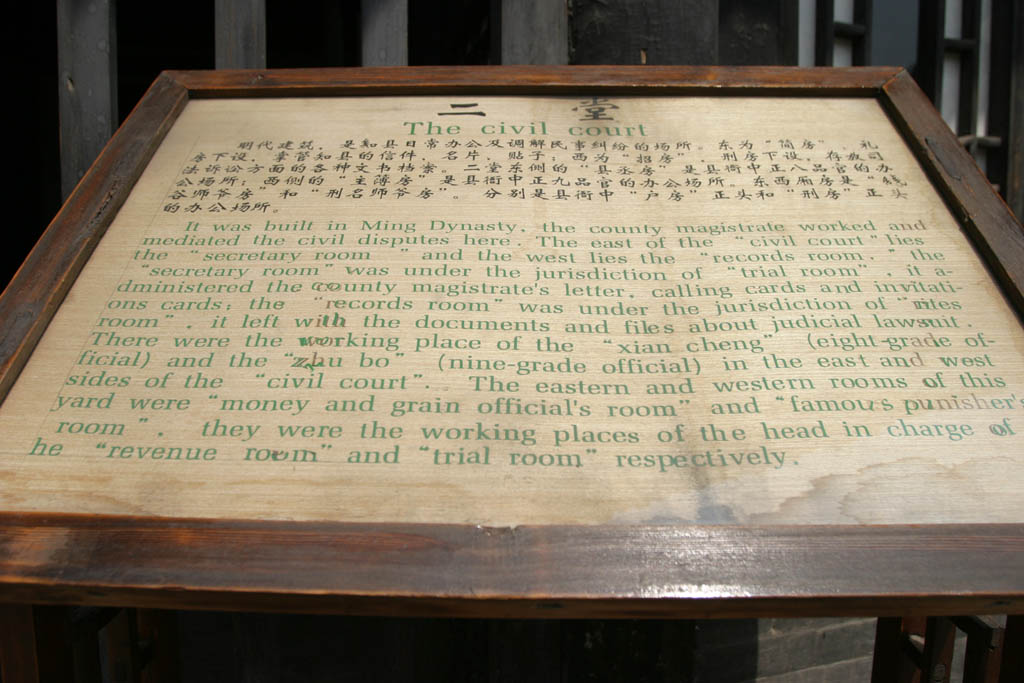 二 堂
The civil court
明代建筑，是知县日常办公及调解民事纠纷的场所。东为“简房”，礼
房下设，掌管知县的信件，名片，贴子；西为“招房”，刑房下设，存放司
法诉讼方面的各种文书档案。二堂东侧的“县丞房”是县衙中正八品官的办
公场所；西侧的“主薄房”是县衙中正九品官的办公场所。东西厢房是“钱
谷师爷房”和“刑名师爷房”。分别是县衙中“户房”正头和“刑房”正头
的办公场所。
It was built in Ming Dynasty, the county magistrate worked and
mediated the civil disputes here. The east of the “civil court” lies
the “secretary room ” and the west lies the “records room.” the
“secretary room” was under the jurisdiction of “trial room”, it a-
dministered the county magistrate's letter, calling cards and invitati-
ons cards; the “records room” was under the jurisdiction of “rites
room”, it left with the documents and files about judicial lawsuit.
There were the working place of the “xian cheng” (eight-grade of-
ficial) and the “zhu bo” (nine-grade official) in the east and west
sides of the “civil court”. The eastern and western rooms of this
yard were “money and grain official's room” and “famous punisher's
room”, they were the working places of the head in charge of
he “revenue room” and “trial room” respectively.